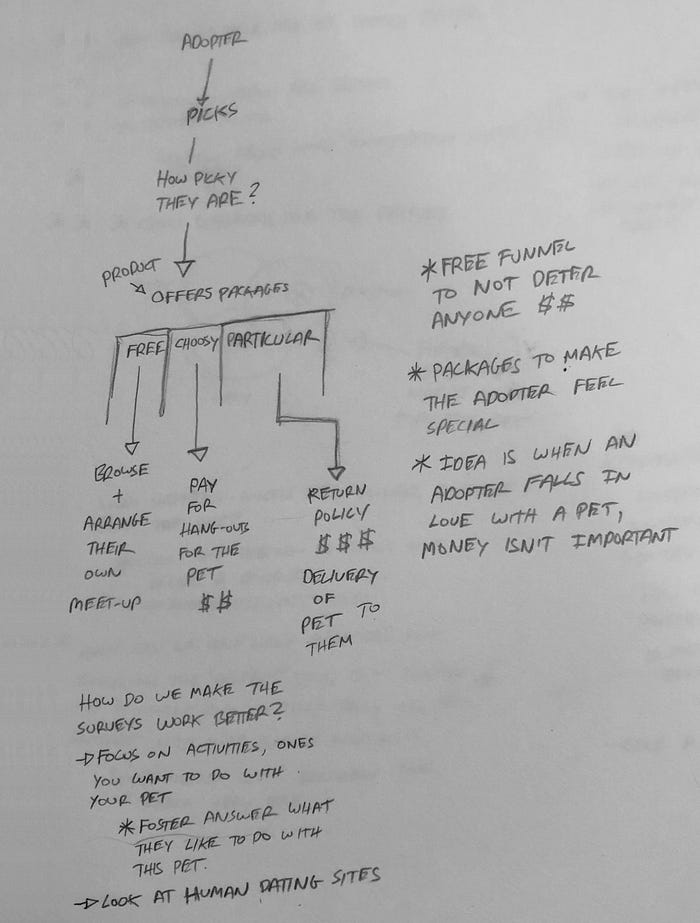 ADOPTER
PICKS
HOW PICKY
THEY ARE?
PRODUCT
OFFERS PACKAGES
FREE CHOOSY PARTICULAR
BROWSE
+
ARRANGE
THEIR
OWN
MEET-UP
PAY
FOR
HANG-OUTS
FOR THE
PET
$$
RETURN
POLICY
$$$
DELIVERY
OF
PET TO
THEM
* FREE FUNNEL
TO NOT DETER
ANYONE $$
* PACKAGES TO MAKE
THE ADOPTER FEEL
SPECIAL
* IDEA IS WHEN AN
ADOPTER FALLS IN
LOVE WITH A PET,
MONEY ISN'T IMPORTANT
HOW DO WE MAKE THE
SURVEYS WORK BETTER?
→ FOCUS ON ACTIVITIES, ONES
YOU WANT TO DO WITH
YOUR PET
* FOSTER ANSWER WHAT
THEY LIKE TO DO WITH
THIS PET.
→ LOOK AT HUMAN DATING SITES